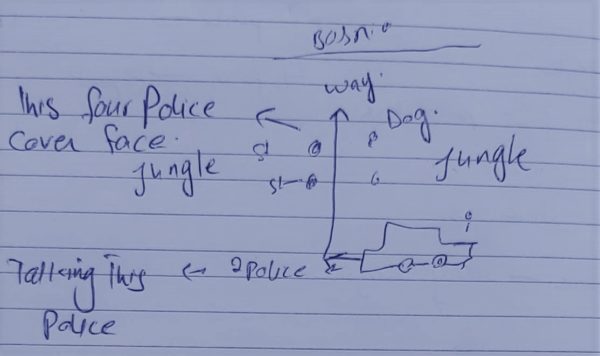 Bosnia
way.
This four Police
cover face.
Dog.
jungle
jungle
st
st
2 Police
Talking This
Police